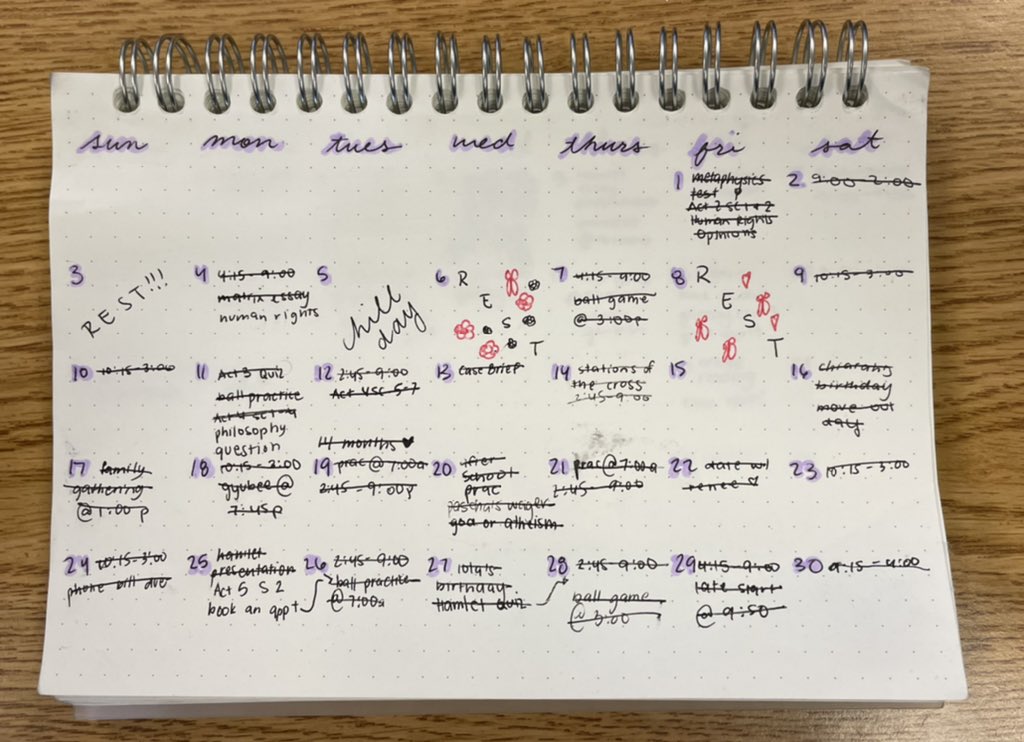 sun mon tues wed thurs fri sat
1 metaphysics
test
Act 2 SC 1 & 2
Human Rights
Opinions
2 9:00 - 2:00
3 REST!!!
4 4:15 - 9:00
matrix essay
human rights
5 chill
day
6 R
E
S
T
7 4:15 - 9:00
ball game
@ 3:00p
8 R
E
S
T
9 10:15 - 3:00
10 10:15 - 3:00
11 Act 3 Quiz
ball practice
Act 4 SC 1-4
philosophy
question
12 2:45 - 9:00
Act 4 SC 5-7
14 months
13 case Brief
14 stations of
the cross
2:45 - 9:00
15
16
birthday
move out
day
17 family
gathering
@ 1:00p
18 10:15 - 3:00
gyubee @
7:45p
19 prac @ 7:00a
2:45 - 9:00p
20 after
school
prac
pascha's wager
god or atheism
21 prac @ 7:00a
2:45 - 9:00
22 date w/
renee
23 10:15 - 3:00
24 10:15 - 3:00
phone bill due
25 hamlet
presentation
Act 5 S 2
book an app t
26 2:45 - 9:00
ball practice
@ 7:00a
27 lola's
birthday
Hamlet Quiz
28 2:45 - 9:00
ball game
@ 3:00
29 4:15 - 9:00
late start
@ 9:50
30 9:15 - 4:00